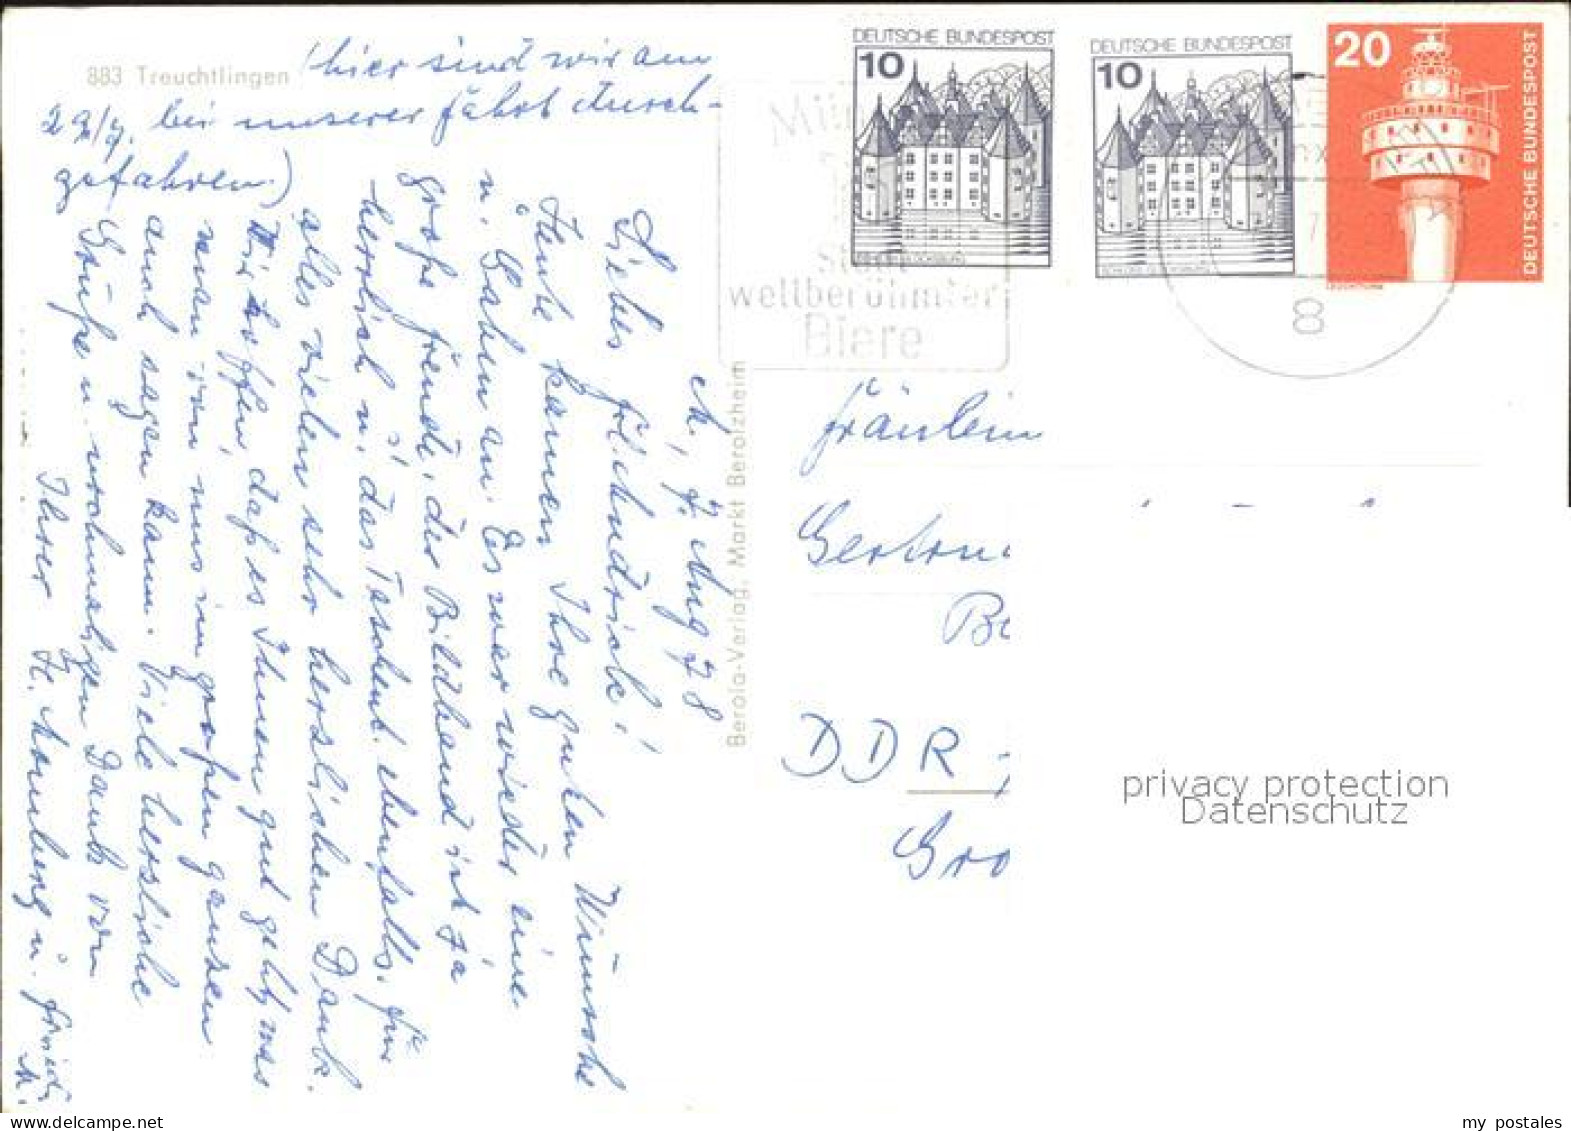 883 Treuchtlingen (hier sind wir am
29/7. bei unserer Fahrt durch-
gefahren.)
M., 7. Aug 78
Liebes Frl.
Heute kamen Ihre guten Wünsche
u. Gaben an. Es war wieder eine
große Freude, der Bildband ist ja
herrlich u. das Taschent. ebenfalls. für
alles vielen sehr herzlichen Dank.
Wir hoffen, daß es Ihnen gut geht, was
man von uns im großen ganzen
auch sagen kann. Viele herzliche
Grüße u. nochmaligen Dank von
Ihrer H. u.
Berola-Verlag, Markt Berolzheim
Stadt
weltberühmter
Biere
DEUTSCHE BUNDESPOST
10
DEUTSCHE BUNDESPOST
10
20
DEUTSCHE BUNDESPOST
8
Fräulein
DDR
privacy protection
Datenschutz
my postales